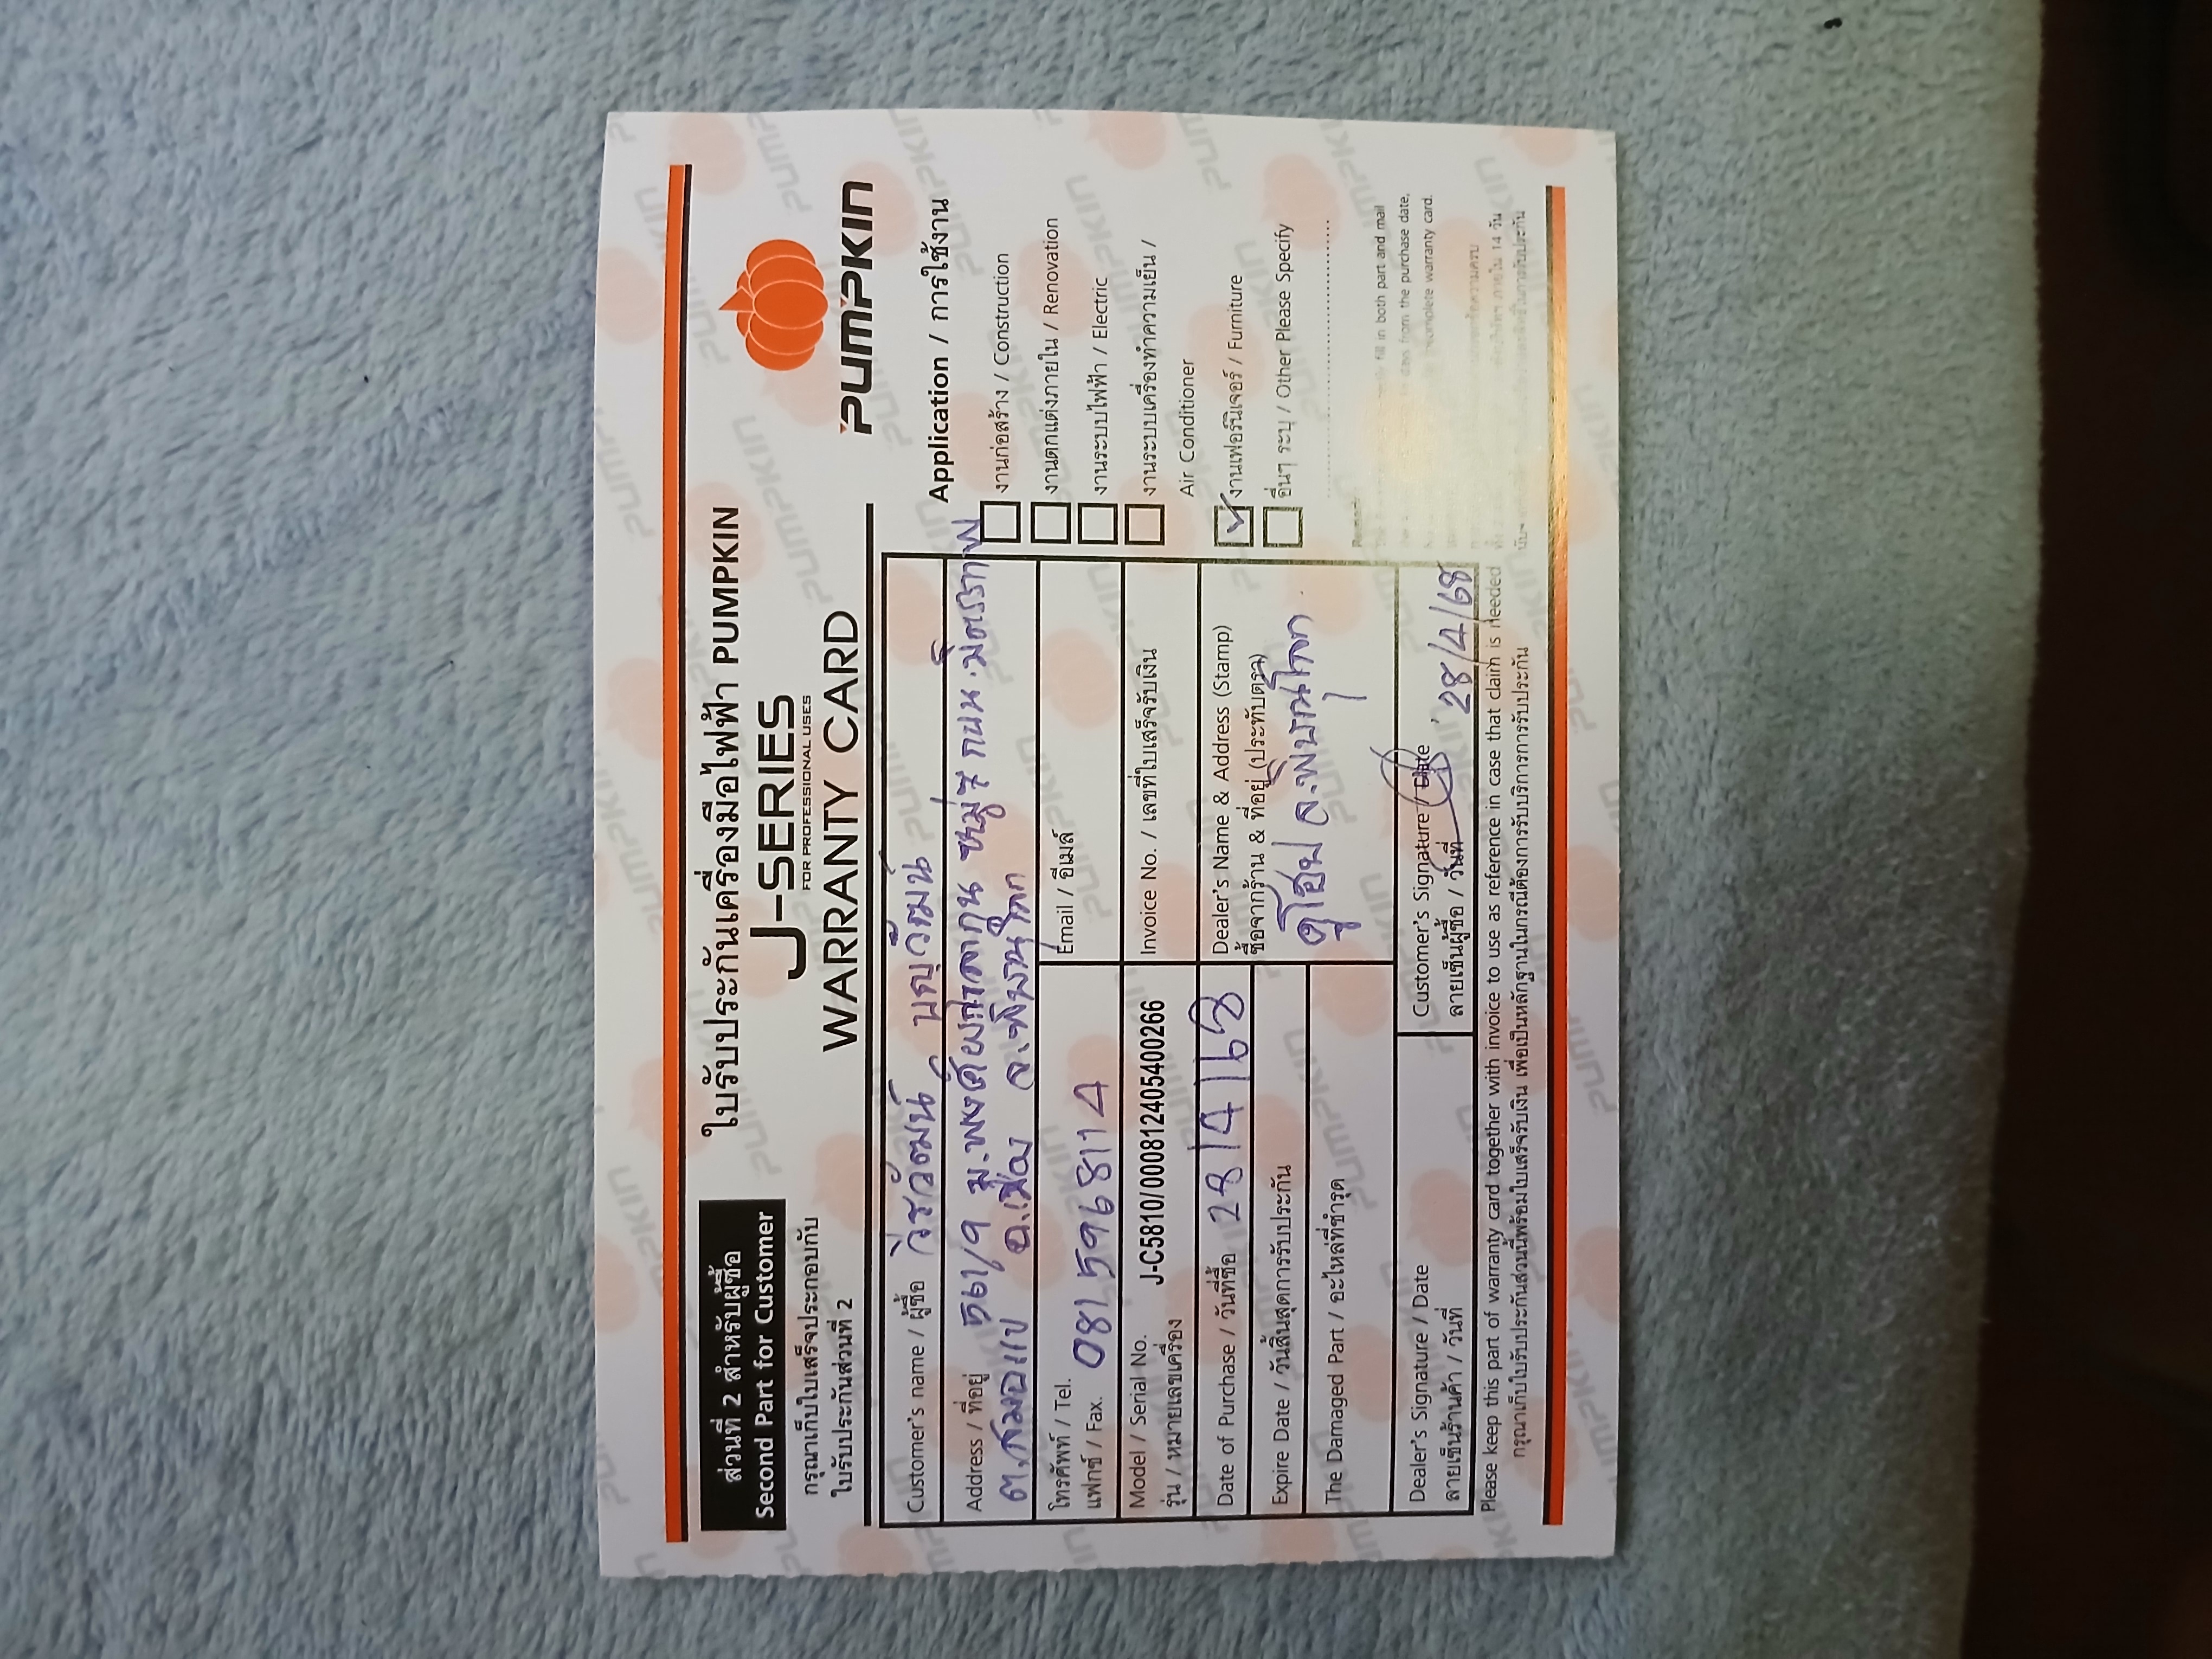 ส่วนที่ 2 สำหรับผู้ซื้อ
Second Part for Customer
กรุณาเก็บใบเสร็จประกอบกับ
ใบรับประกันส่วนที่ 2
ใบรับประกันเครื่องมือไฟฟ้า PUMPKIN
J-SERIES
FOR PROFESSIONAL USES
WARRANTY CARD
PUMPKIN
Customer's name / ผู้ซื้อ วีรวัฒน์ บุญวัฒน์
Address / ที่อยู่ 561/9 ม. หมู่ 7 ถนน.มิตรภาพ
ต.สมอแข อ.เมือง จ.พิษณุโลก
โทรศัพท์ / Tel.
แฟกซ์ / Fax. 0815968114
Email / อีเมล์
Model / Serial No. J-C5810/000812405400266
รุ่น / หมายเลขเครื่อง
Invoice No. / เลขที่ใบเสร็จรับเงิน
Date of Purchase / วันที่ซื้อ 28/4/68
Expire Date / วันสิ้นสุดการรับประกัน
The Damaged Part / อะไหล่ที่ชำรุด
Dealer's Name & Address (Stamp)
ซื้อจากร้าน & ที่อยู่ (ประทับตรา)
ดูโฮม จ.พิษณุโลก
Dealer's Signature / Date
ลายเซ็นร้านค้า / วันที่
Customer's Signature / Date
ลายเซ็นผู้ซื้อ / วันที่ 28/4/68
Application / การใช้งาน
งานก่อสร้าง / Construction
งานตกแต่งภายใน / Renovation
งานระบบไฟฟ้า / Electric
งานระบบเครื่องทำความเย็น /
Air Conditioner
งานเฟอร์นิเจอร์ / Furniture
อื่นๆ ระบุ / Other Please Specify
fill in both part and mail
from the purchase date,
incomplete warranty card.
ภายใน 14 วัน
Please keep this part of warranty card together with invoice to use as reference in case that claim is needed
กรุณาเก็บใบรับประกันส่วนนี้พร้อมใบเสร็จรับเงิน เพื่อเป็นหลักฐานในกรณีต้องการรับบริการการรับประกัน